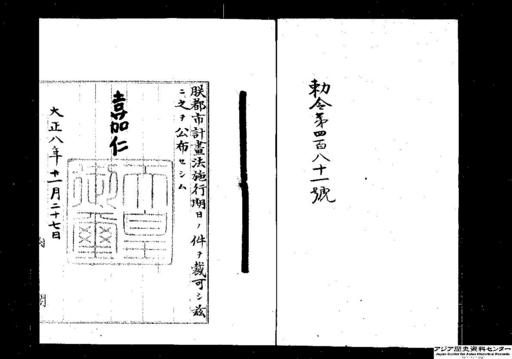 勅令第四百八十一號
朕都市計畫法施行期日ノ件ヲ裁可シ茲
ニ之ヲ公布セシム
嘉仁
天皇御璽
大正八年十一月二十七日
内閣
アジア歴史資料センター
Japan Center for Asian Historical Records